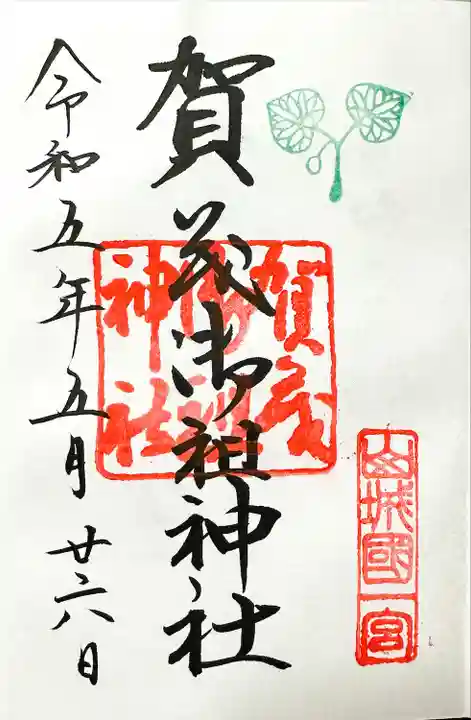 山城國一宮
賀茂御祖神社
賀茂
御祖
神社
令和五年五月廿六日